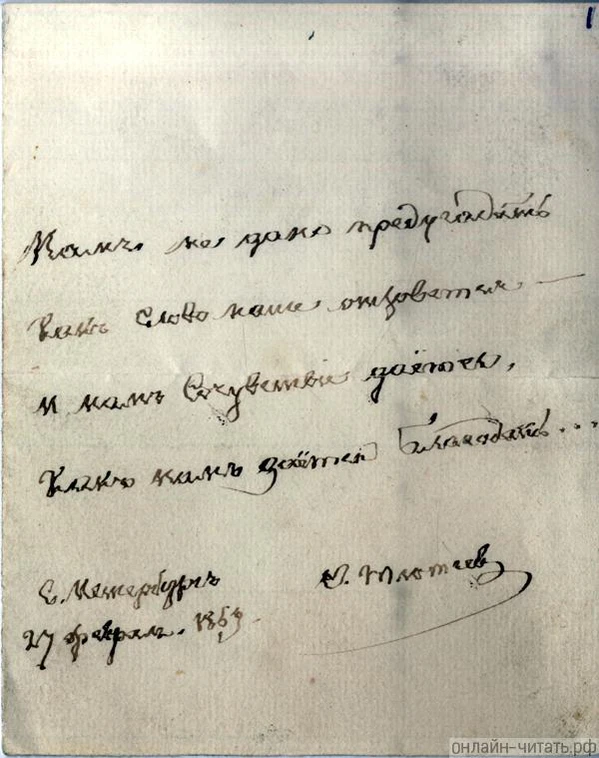 1
Намъ не дано предугадать
Какъ слово наше отзовется —
И намъ Сочувствіе даётся,
Какъ намъ даётся Благодать...
С. Петербургъ
Ѳ. Тютчев
27 феврал. 1869.
онлайн-читать.рф